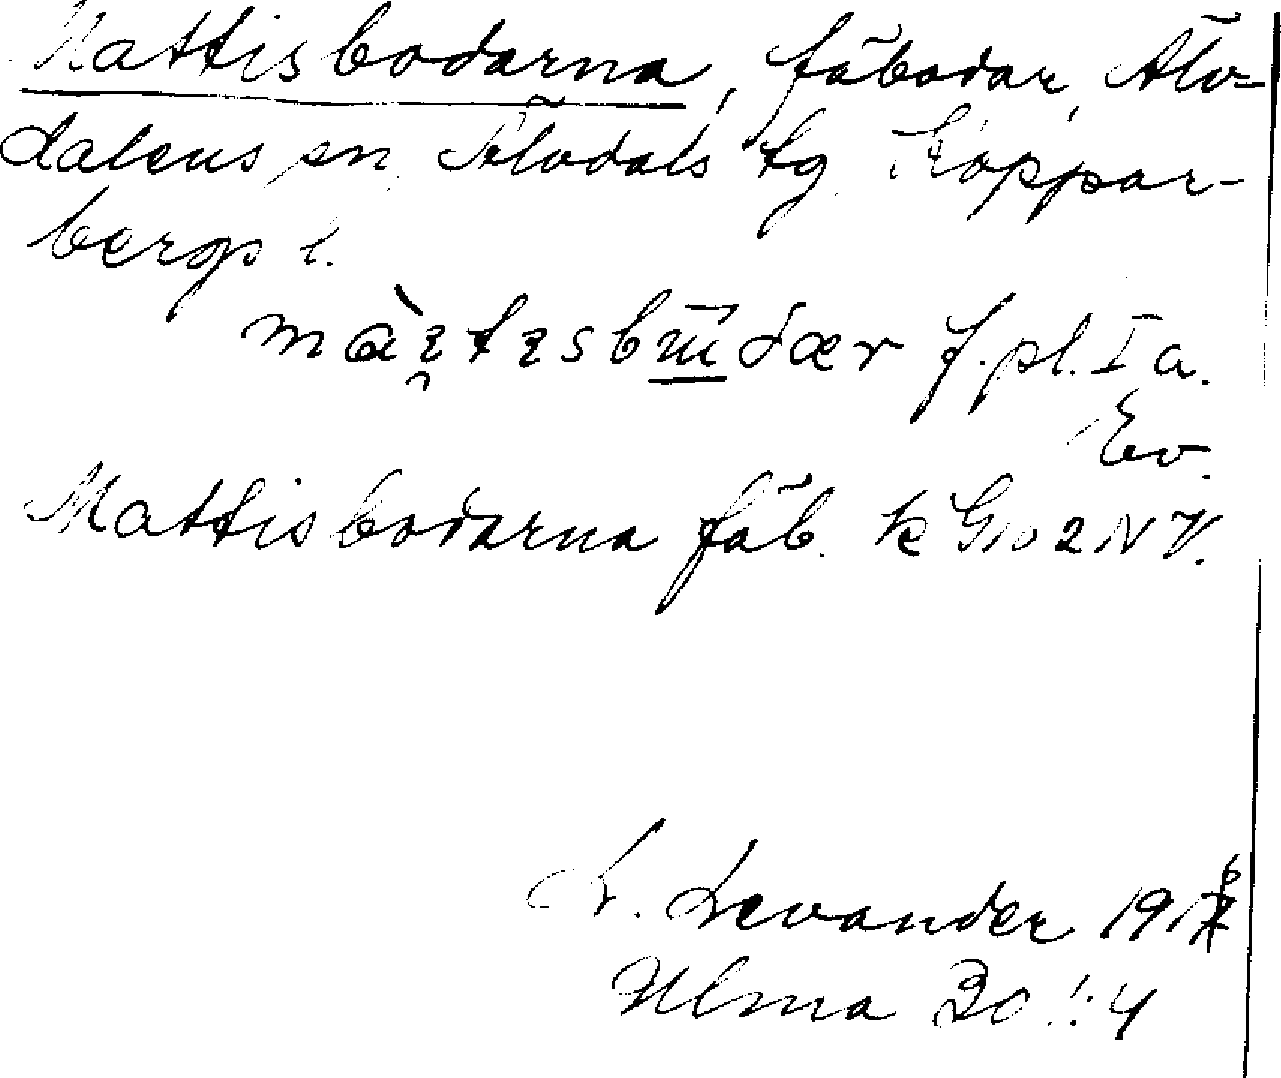 Mattisbodarna, fäbodar, Älv-
dalens sn, Älvdals tg. Koppar-
bergs l.
f. pl. I a.
Ev.
Mattisbodarna fäb. k G10 2 NV.
L. Levander
Ulma 30